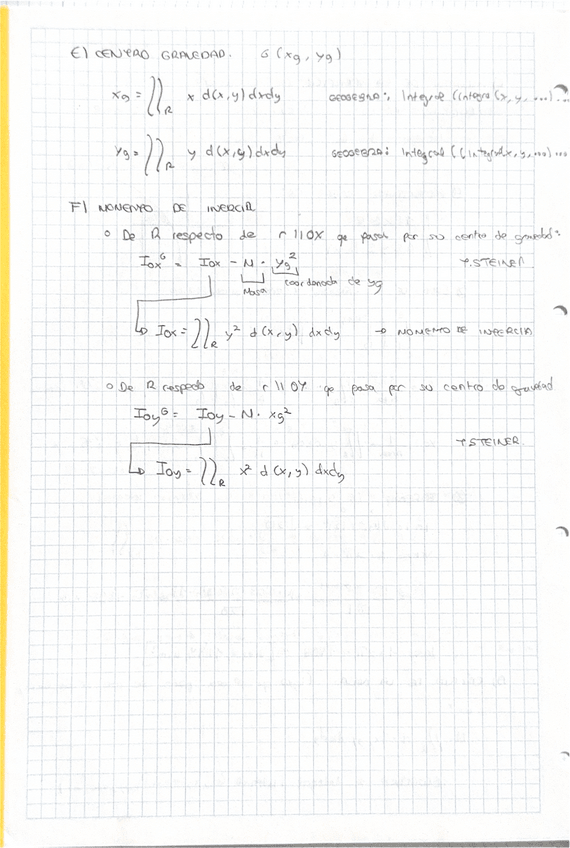 E) CENTRO GRAVEDAD. G (xg, yg)
xg = ∬R x d(x,y) dxdy GEOGEBRA: Integral (Integral (x, y, ...) ...
yg = ∬R y d(x,y) dxdy GEOGEBRA: Integral ((Integral x, y, ...) ...
F) MOMENTO DE INERCIA
o De R respecto de r || OX qe pasa por su centro de gravedad:
Iox^G = Iox - M · yg² T. STEINER
Masa coordenada de yg
↳ Iox = ∬R y² d(x,y) dxdy → MOMENTO DE INERCIA
o De R respecto de r || OY qe pasa por su centro de gravedad
Ioy^G = Ioy - M · xg²
T STEINER
↳ Ioy = ∬R x² d(x,y) dxdy